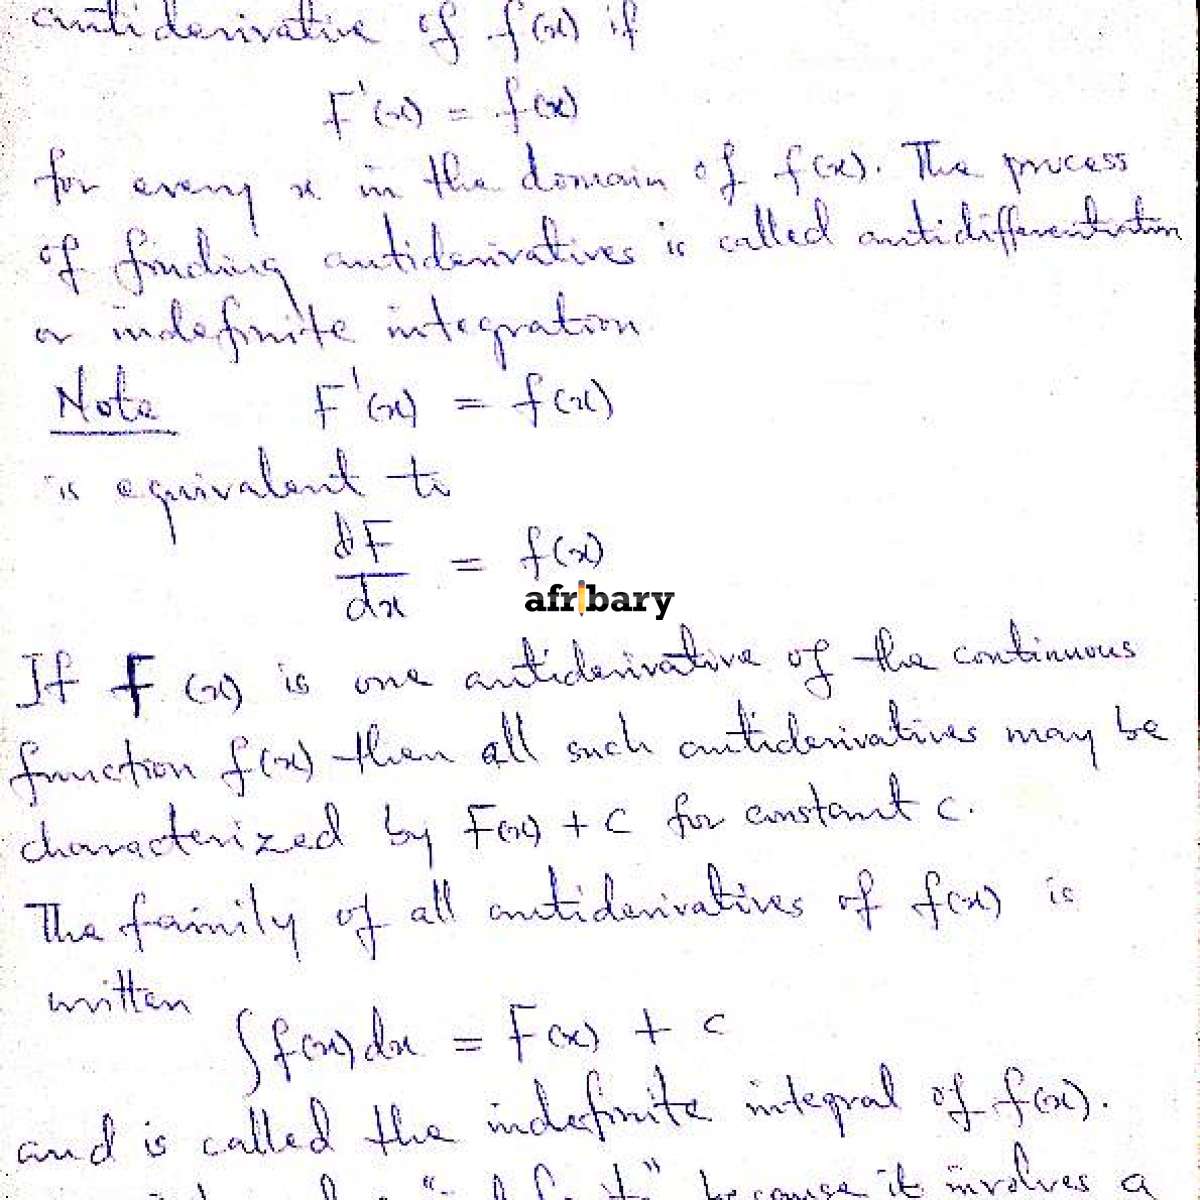 antiderivative of f(x) if
F'(x) = f(x)
for every x in the domain of f(x). The process
of finding antiderivatives is called antidifferentiation
or indefinite integration
Note F'(x) = f(x)
is equivalent to
dF/dx = f(x)
afribary
If F(x) is one antiderivative of the continuous
function f(x) then all such antiderivatives may be
characterized by F(x) + c for constant c.
The family of all antiderivatives of f(x) is
written
∫f(x)dx = F(x) + c
and is called the indefinite integral of f(x).
because it involves a